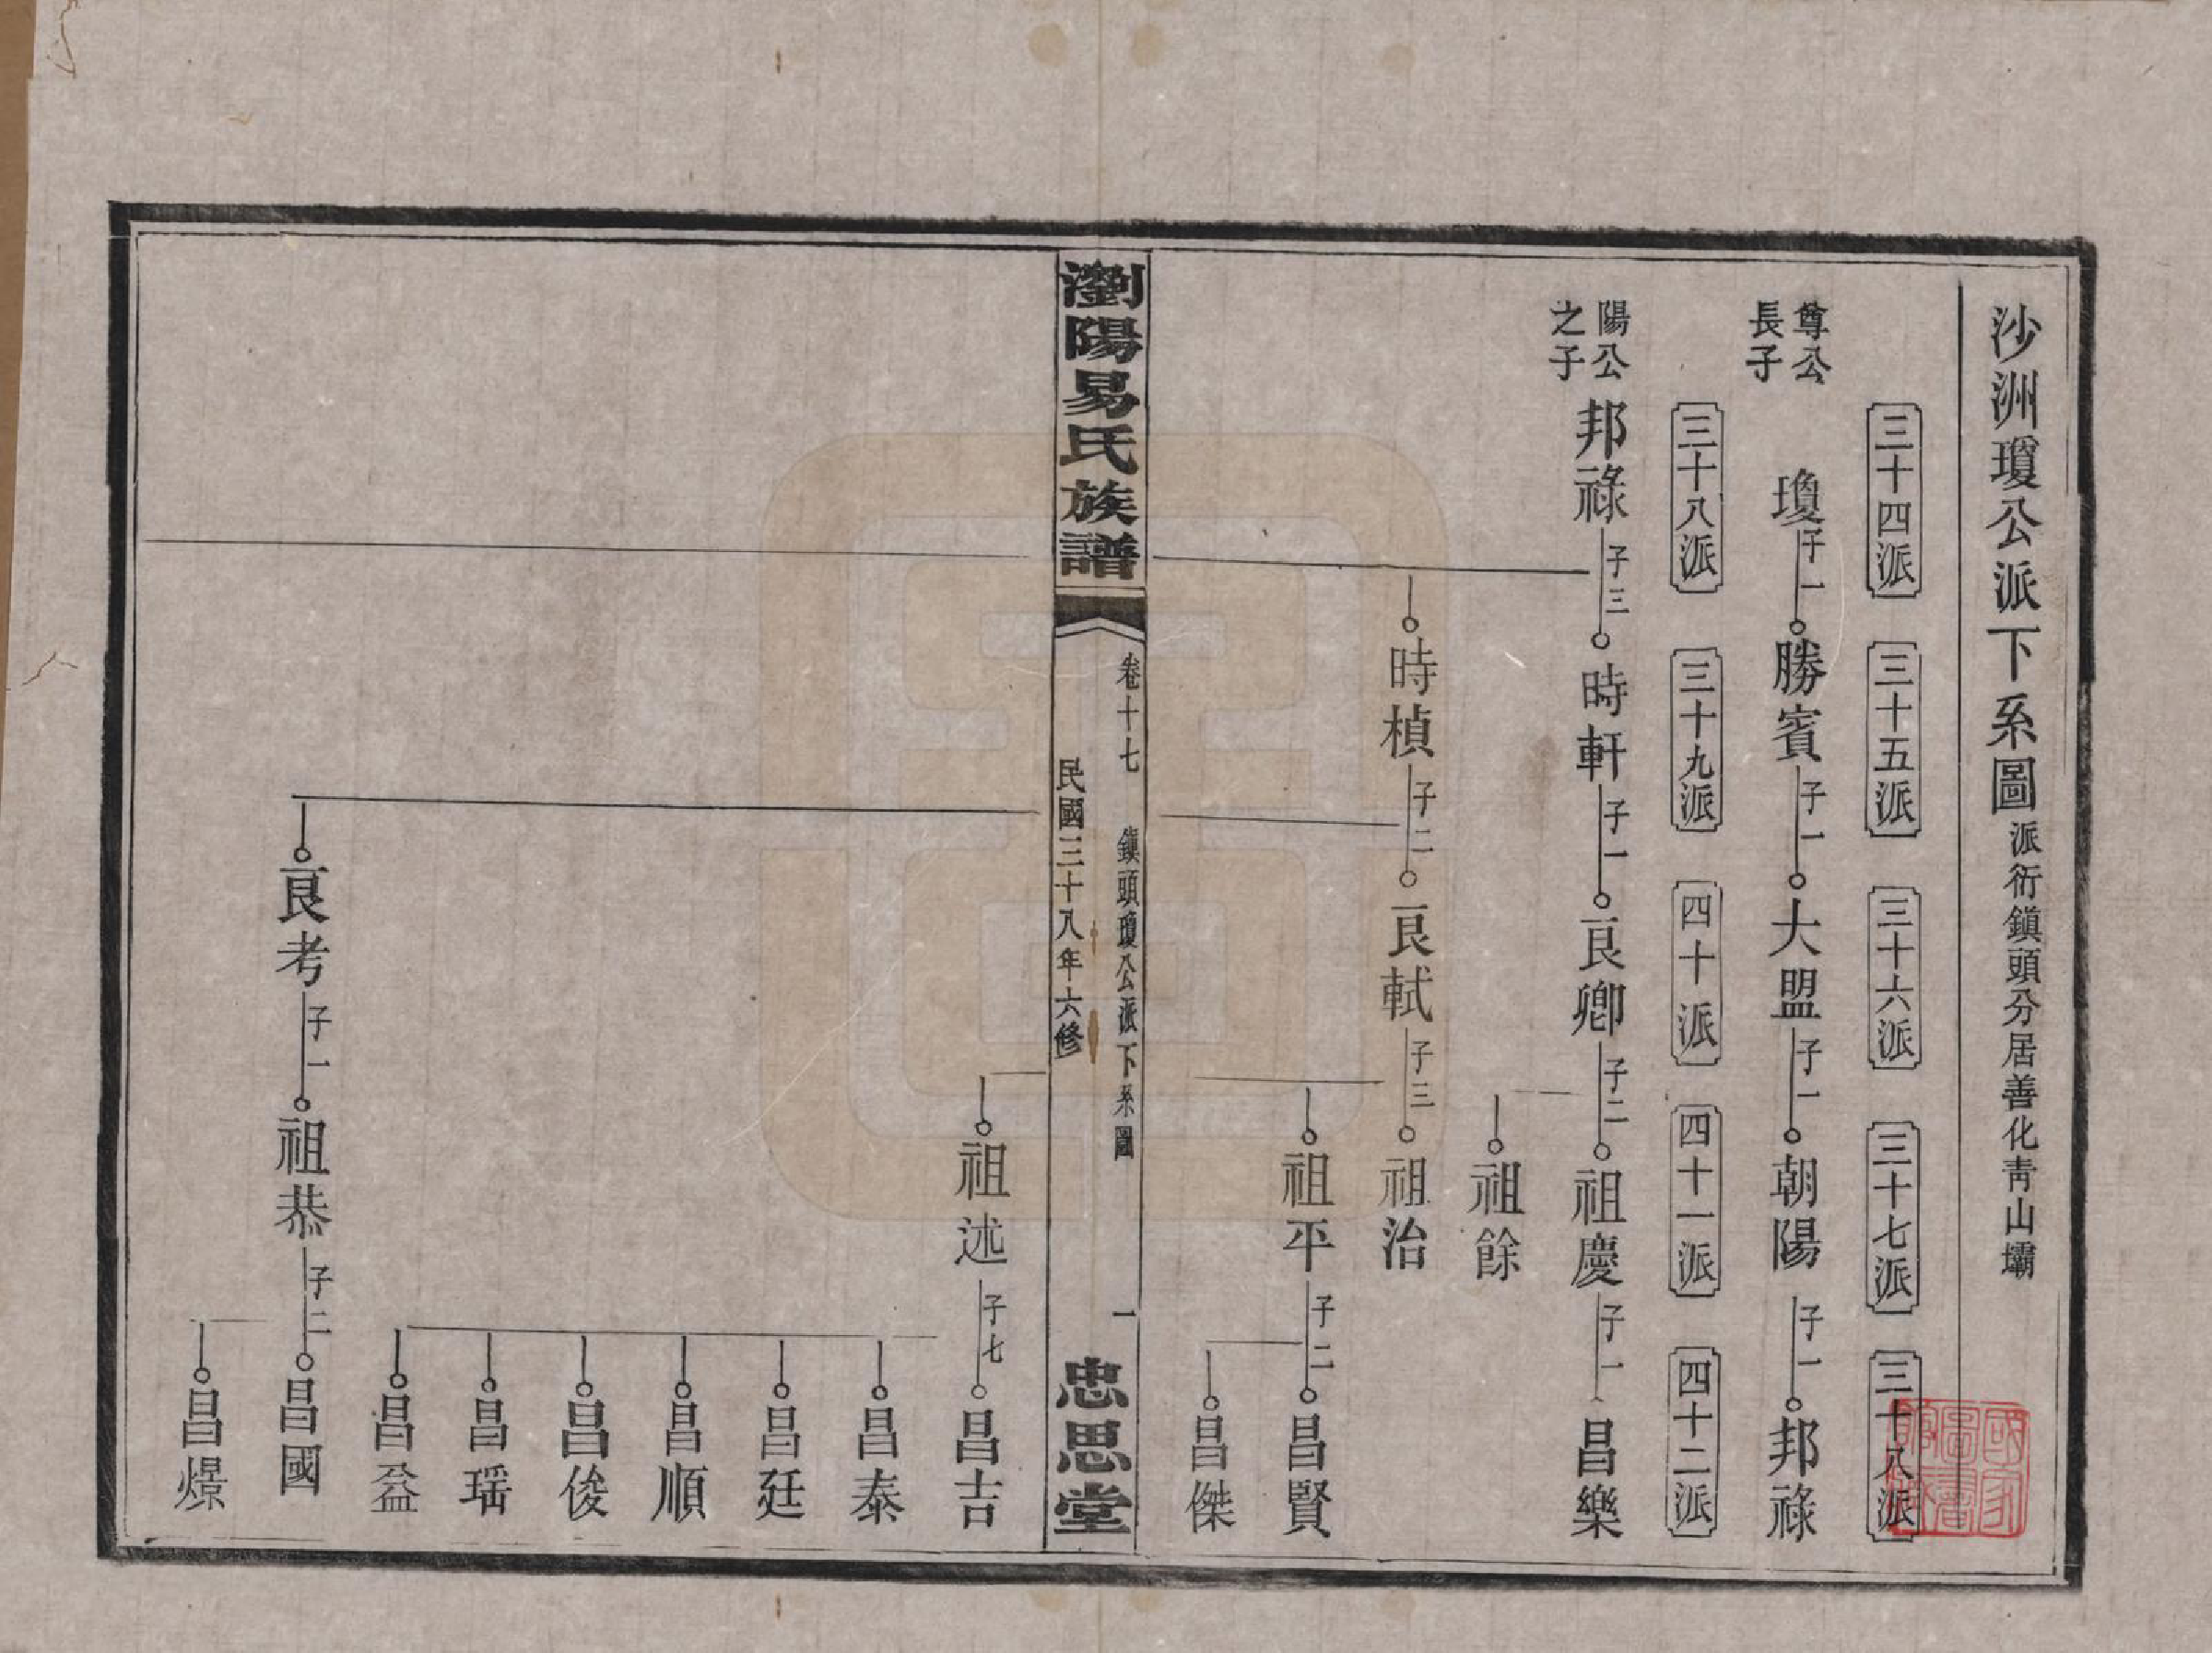 沙洲瓊公派下系圖 派衍鎮頭分居善化靑山壩
三十四派 三十五派 三十六派 三十七派 三十八派
尊公
長子
瓊 子一 勝賓 子一 大盟 子一 朝陽 子一 邦祿
三十八派 三十九派 四十派 四十一派 四十二派
陽公
之子
邦祿 子三 時軒 子一 良卿 子二 祖慶 子一 昌樂
祖餘
時楨 子二 良軾 子三 祖治
祖平 子二 昌賢
昌傑
瀏陽易氏族譜
卷十七 鎮頭瓊公派下系圖 一
民國三十八年六修
忠思堂
祖述 子七 昌吉
昌泰
昌廷
昌順
昌俊
昌瑶
昌益
良考 子一 祖恭 子二 昌國
昌燝